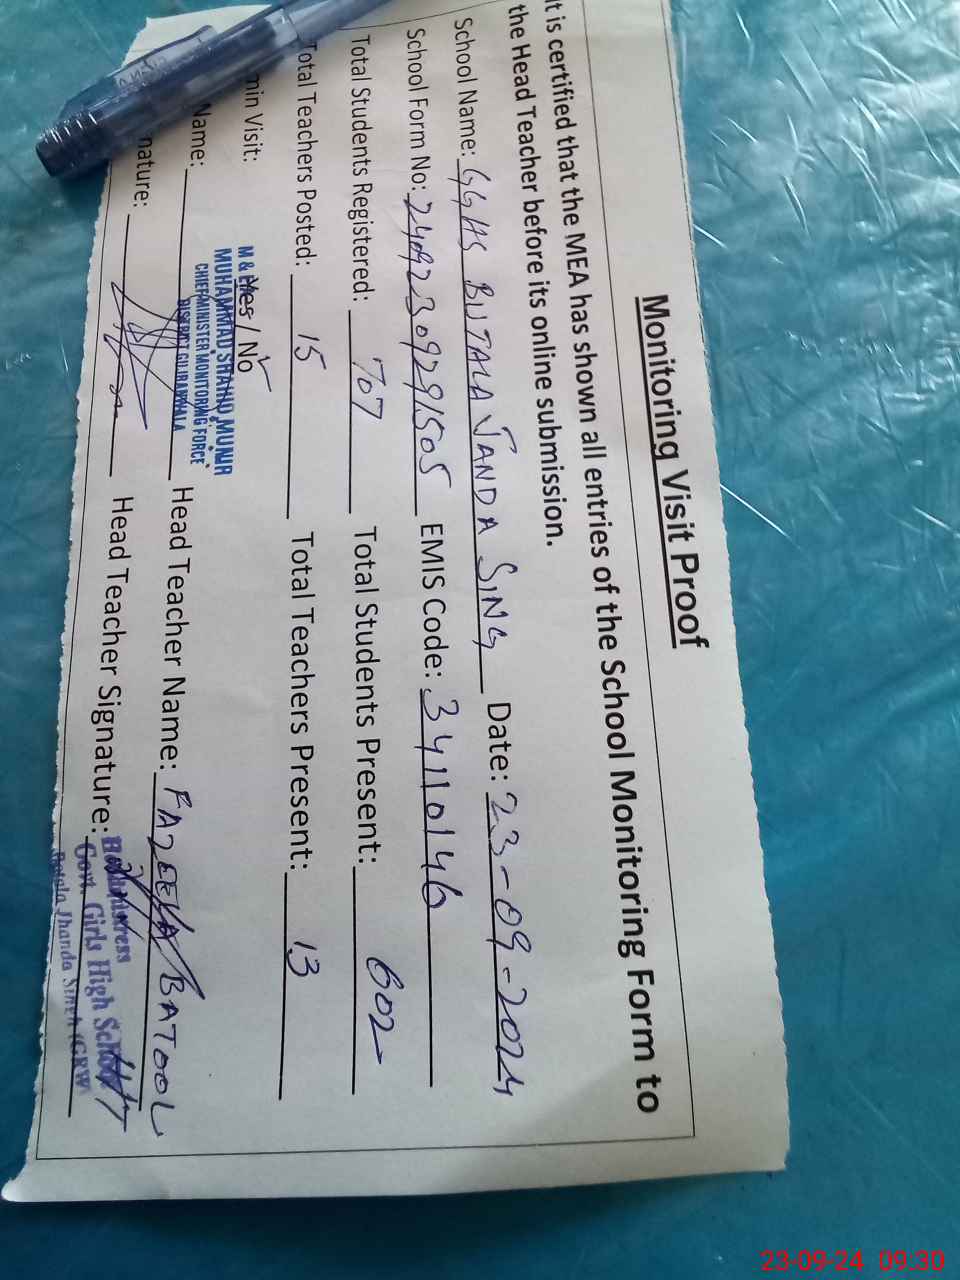 Monitoring Visit Proof
It is certified that the MEA has shown all entries of the School Monitoring Form to
the Head Teacher before its online submission.
School Name: GGHS BUTALA JANDA SING Date: 23-09-2024
School Form No: 24092309291505 EMIS Code: 34110146
Total Students Registered: 707 Total Students Present: 602
Total Teachers Posted: 15 Total Teachers Present: 13
min Visit: Yes / No
Name: Head Teacher Name: FAZEELA BATOOL
nature: Head Teacher Signature:
MUHAMMAD SHAHID MUNIR
CHIEF MINISTER MONITORING FORCE
DISTRICT GUJRANWALA
Headmistress
Govt. Girls High School
Botala Jhanda Singh (GRW)
23-09-24 09:30